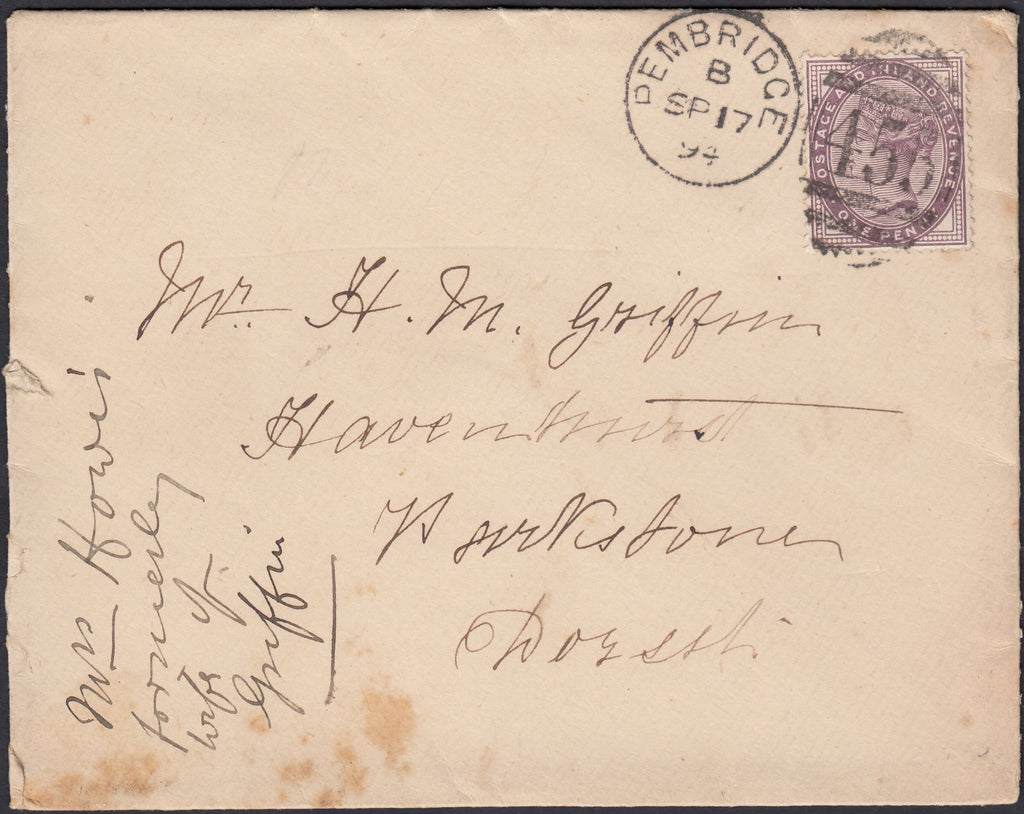 PEMBRIDGE
B
SP 17
94
POSTAGE AND INLAND REVENUE
ONE PENNY
Mr. H. M. Griffin
Havenhurst
Parkstone
Dorset
Mrs
formerly
wife
of
Griffin